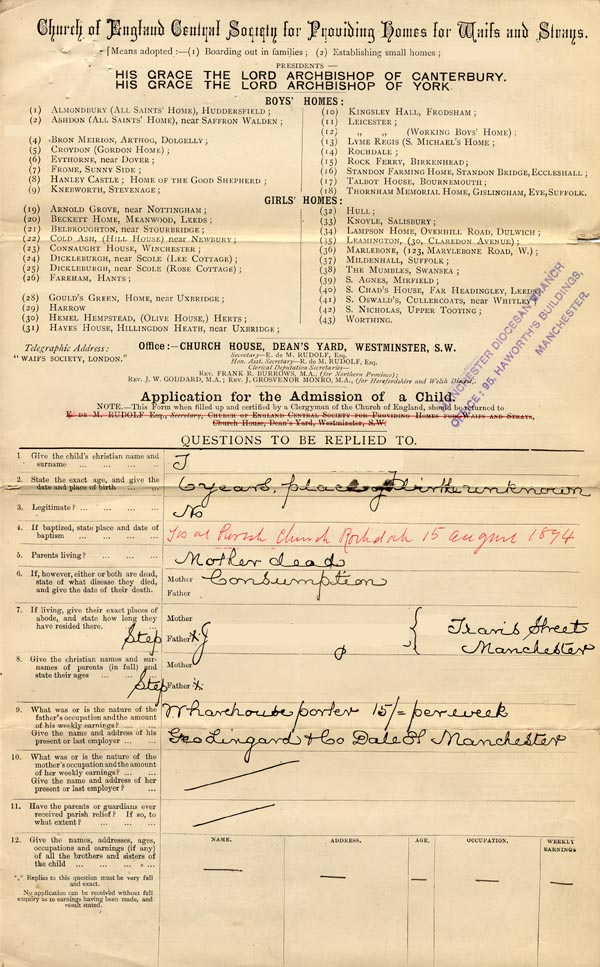 Church of England Central Society for Providing Homes for Waifs and Strays.
[Means adopted :—(1) Boarding out in families; (2) Establishing small homes;
PRESIDENTS —
HIS GRACE THE LORD ARCHBISHOP OF CANTERBURY.
HIS GRACE THE LORD ARCHBISHOP OF YORK.
BOYS' HOMES:
(1) ALMONDBURY (ALL SAINTS' HOME), HUDDERSFIELD;
(2) ASHDON (ALL SAINTS' HOME), near SAFFRON WALDEN;
(4) BRON MEIRION, ARTHOG, DOLGELLY;
(5) CROYDON (GORDON HOME);
(6) EYTHORNE, near DOVER;
(7) FROME, SUNNY SIDE;
(8) HANLEY CASTLE; HOME OF THE GOOD SHEPHERD;
(9) KNEBWORTH, STEVENAGE;
(10) KINGSLEY HALL, FRODSHAM;
(11) LEICESTER;
(12) " " (WORKING BOYS' HOME);
(13) LYME REGIS (S. MICHAEL'S HOME;
(14) ROCHDALE;
(15) ROCK FERRY, BIRKENHEAD;
(16) STANDON FARMING HOME, STANDON BRIDGE, ECCLESHALL;
(17) TALBOT HOUSE, BOURNEMOUTH;
(18) THORNHAM MEMORIAL HOME, GISLINGHAM, EYE, SUFFOLK.
GIRLS' HOMES:
(19) ARNOLD GROVE, near NOTTINGHAM;
(20) BECKETT HOME, MEANWOOD, LEEDS;
(21) BELBROUGHTON, near STOURBRIDGE;
(22) COLD ASH, (HILL HOUSE) near NEWBURY;
(23) CONNAUGHT HOUSE, WINCHESTER;
(24) DICKLEBURGH, near SCOLE (LEE COTTAGE);
(25) DICKLEBURGH, near SCOLE (ROSE COTTAGE);
(26) FAREHAM, HANTS;
(28) GOULD'S GREEN, HOME, near UXBRIDGE;
(29) HARROW
(30) HEMEL HEMPSTEAD, (OLIVE HOUSE,) HERTS;
(31) HAYES HOUSE, HILLINGDON HEATH, near UXBRIDGE;
(32) HULL;
(33) KNOYLE, SALISBURY;
(34) LAMPSON HOME, OVERHILL ROAD, DULWICH;
(35) LEAMINGTON, (30, CLAREDON AVENUE);
(36) MARLEBONE, (123, MARYLEBONE ROAD, W.);
(37) MILDENHALL, SUFFOLK;
(38) THE MUMBLES, SWANSEA;
(39) S. AGNES, MIRFIELD;
(40) S. CHAD'S HOUSE, FAR HEADINGLEY, LEEDS;
(41) S. OSWALD'S, CULLERCOATS, near WHITLEY;
(42) S. NICHOLAS, UPPER TOOTING;
(43) WORTHING.
MANCHESTER DIOCESAN BRANCH
OFFICE: 95, HAWORTH'S BUILDINGS,
MANCHESTER.
Telegraphic Address:
"WAIFS SOCIETY, LONDON."
Office:—CHURCH HOUSE, DEAN'S YARD, WESTMINSTER, S.W.
Secretary—E. DE M. RUDOLF, ESQ.
Hon. Asst. Secretary—R. DE M. RUDOLF, ESQ.
Clerical Deputation Secretaries—
REV. FRANK R. BURROWS, M.A., (for Northern Province);
REV. J. W. GODDARD, M.A.; REV. J. GROSVENOR MONRO, M.A., (for Herefordshire and Welsh Dioces).
Application for the Admission of a Child.
NOTE.—This Form when filled up and certified by a Clergyman of the Church of England, should be returned to
E. DE M. RUDOLF ESQ., Secretary, CHURCH OF ENGLAND CENTRAL SOCIETY FOR PROVIDING HOMES FOR WAIFS AND STRAYS,
Church House, Dean's Yard, Westminster, S.W.
QUESTIONS TO BE REPLIED TO.
1 Give the child's christian name and
surname
J
2. State the exact age, and give the
date and place of birth
6 years, place of birth unknown
3. Legitimate?
No
4. If baptized, state place and date of
baptism
Yes at Parish Church Rochdale 15 August 1894
5. Parents living?
Mother dead
6. If, however, either or both are dead,
state of what disease they died,
and give the date of their death.
Mother Consumption
Father
7. If living, give their exact places of
abode, and state how long they
have resided there.
Mother
Step Father J
Travis Street
Manchester
8. Give the christian names and sur-
names of parents (in full) and
state their ages
Mother
Step Father
9. What was or is the nature of the
father's occupation and the amount
of his weekly earnings?
Give the name and address of his
present or last employer
Wharehouse porter 15/= per week
Geo Lingard & Co Dale St Manchester
10. What was or is the nature of the
mother's occupation and the amount
of her weekly earnings?
Give the name and address of her
present or last employer?
11. Have the parents or guardians ever
received parish relief? If so, to
what extent?
12. Give the names, addresses, ages,
occupations and earnings (if any)
of all the brothers and sisters of
the child
NAME. ADDRESS. AGE. OCCUPATION. WEEKLY EARNINGS
— — — — —
*** Replies to this question must be very full
and exact.
No application can be received without full
enquiry as to earnings having been made, and
result stated.